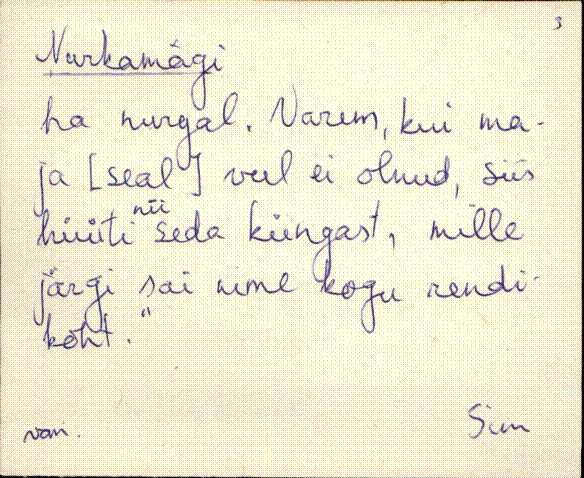 3
Nurkamägi
ha nurgal. Varem, kui ma-
ja [seal] veel ei olnud, siis
hüüti nii seda küngast, mille
järgi sai nime kogu rendi-
koht."
van. Sim